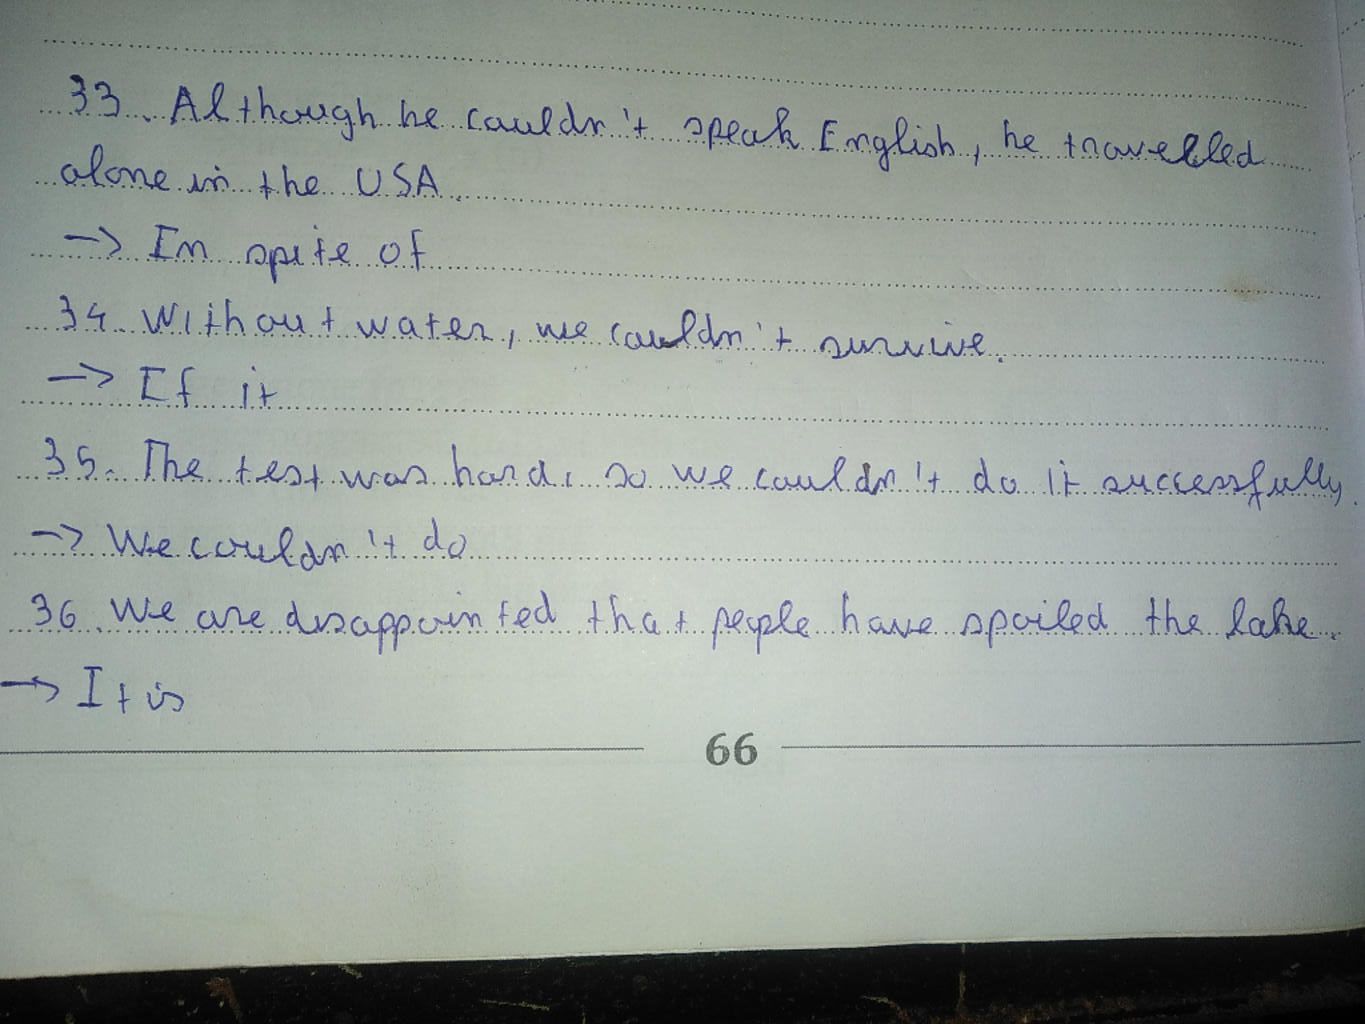 33. Although he couldn't speak English, he travelled
alone in the USA.
→ In spite of
34. Without water, we couldn't survive.
→ If it
35. The test was hard, so we couldn't do it successfully.
→ We couldn't do
36. We are disappointed that people have spoiled the lake.
→ It is
66